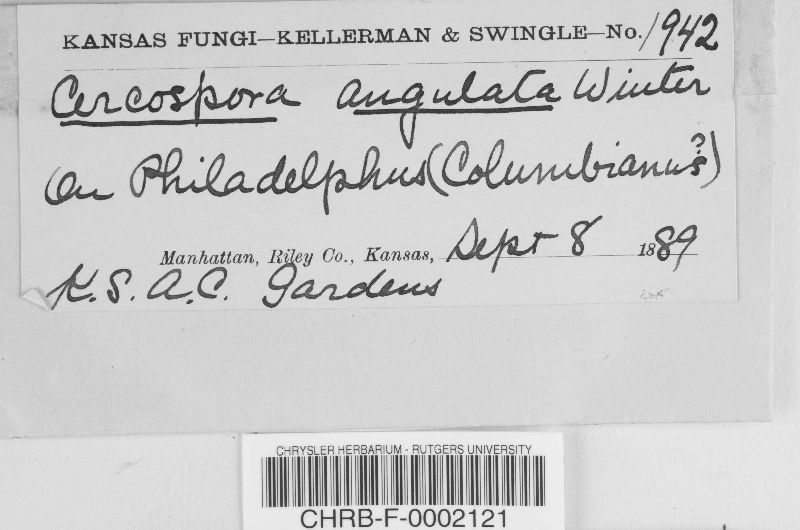 KANSAS FUNGI—KELLERMAN & SWINGLE—No. 1942
Cercospora angulata Winter
On Philadelphus (Columbianus?)
Manhattan, Riley Co., Kansas, Sept 8 1889
K.S.A.C. Gardens
CHRYSLER HERBARIUM - RUTGERS UNIVERSITY
CHRB-F-0002121